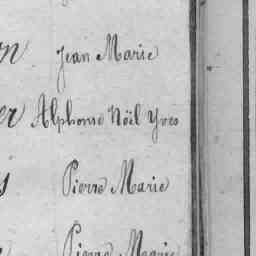 n Jean Marie
er Alphonse Noël Yves
s Pierre Marie
Pierre Marie